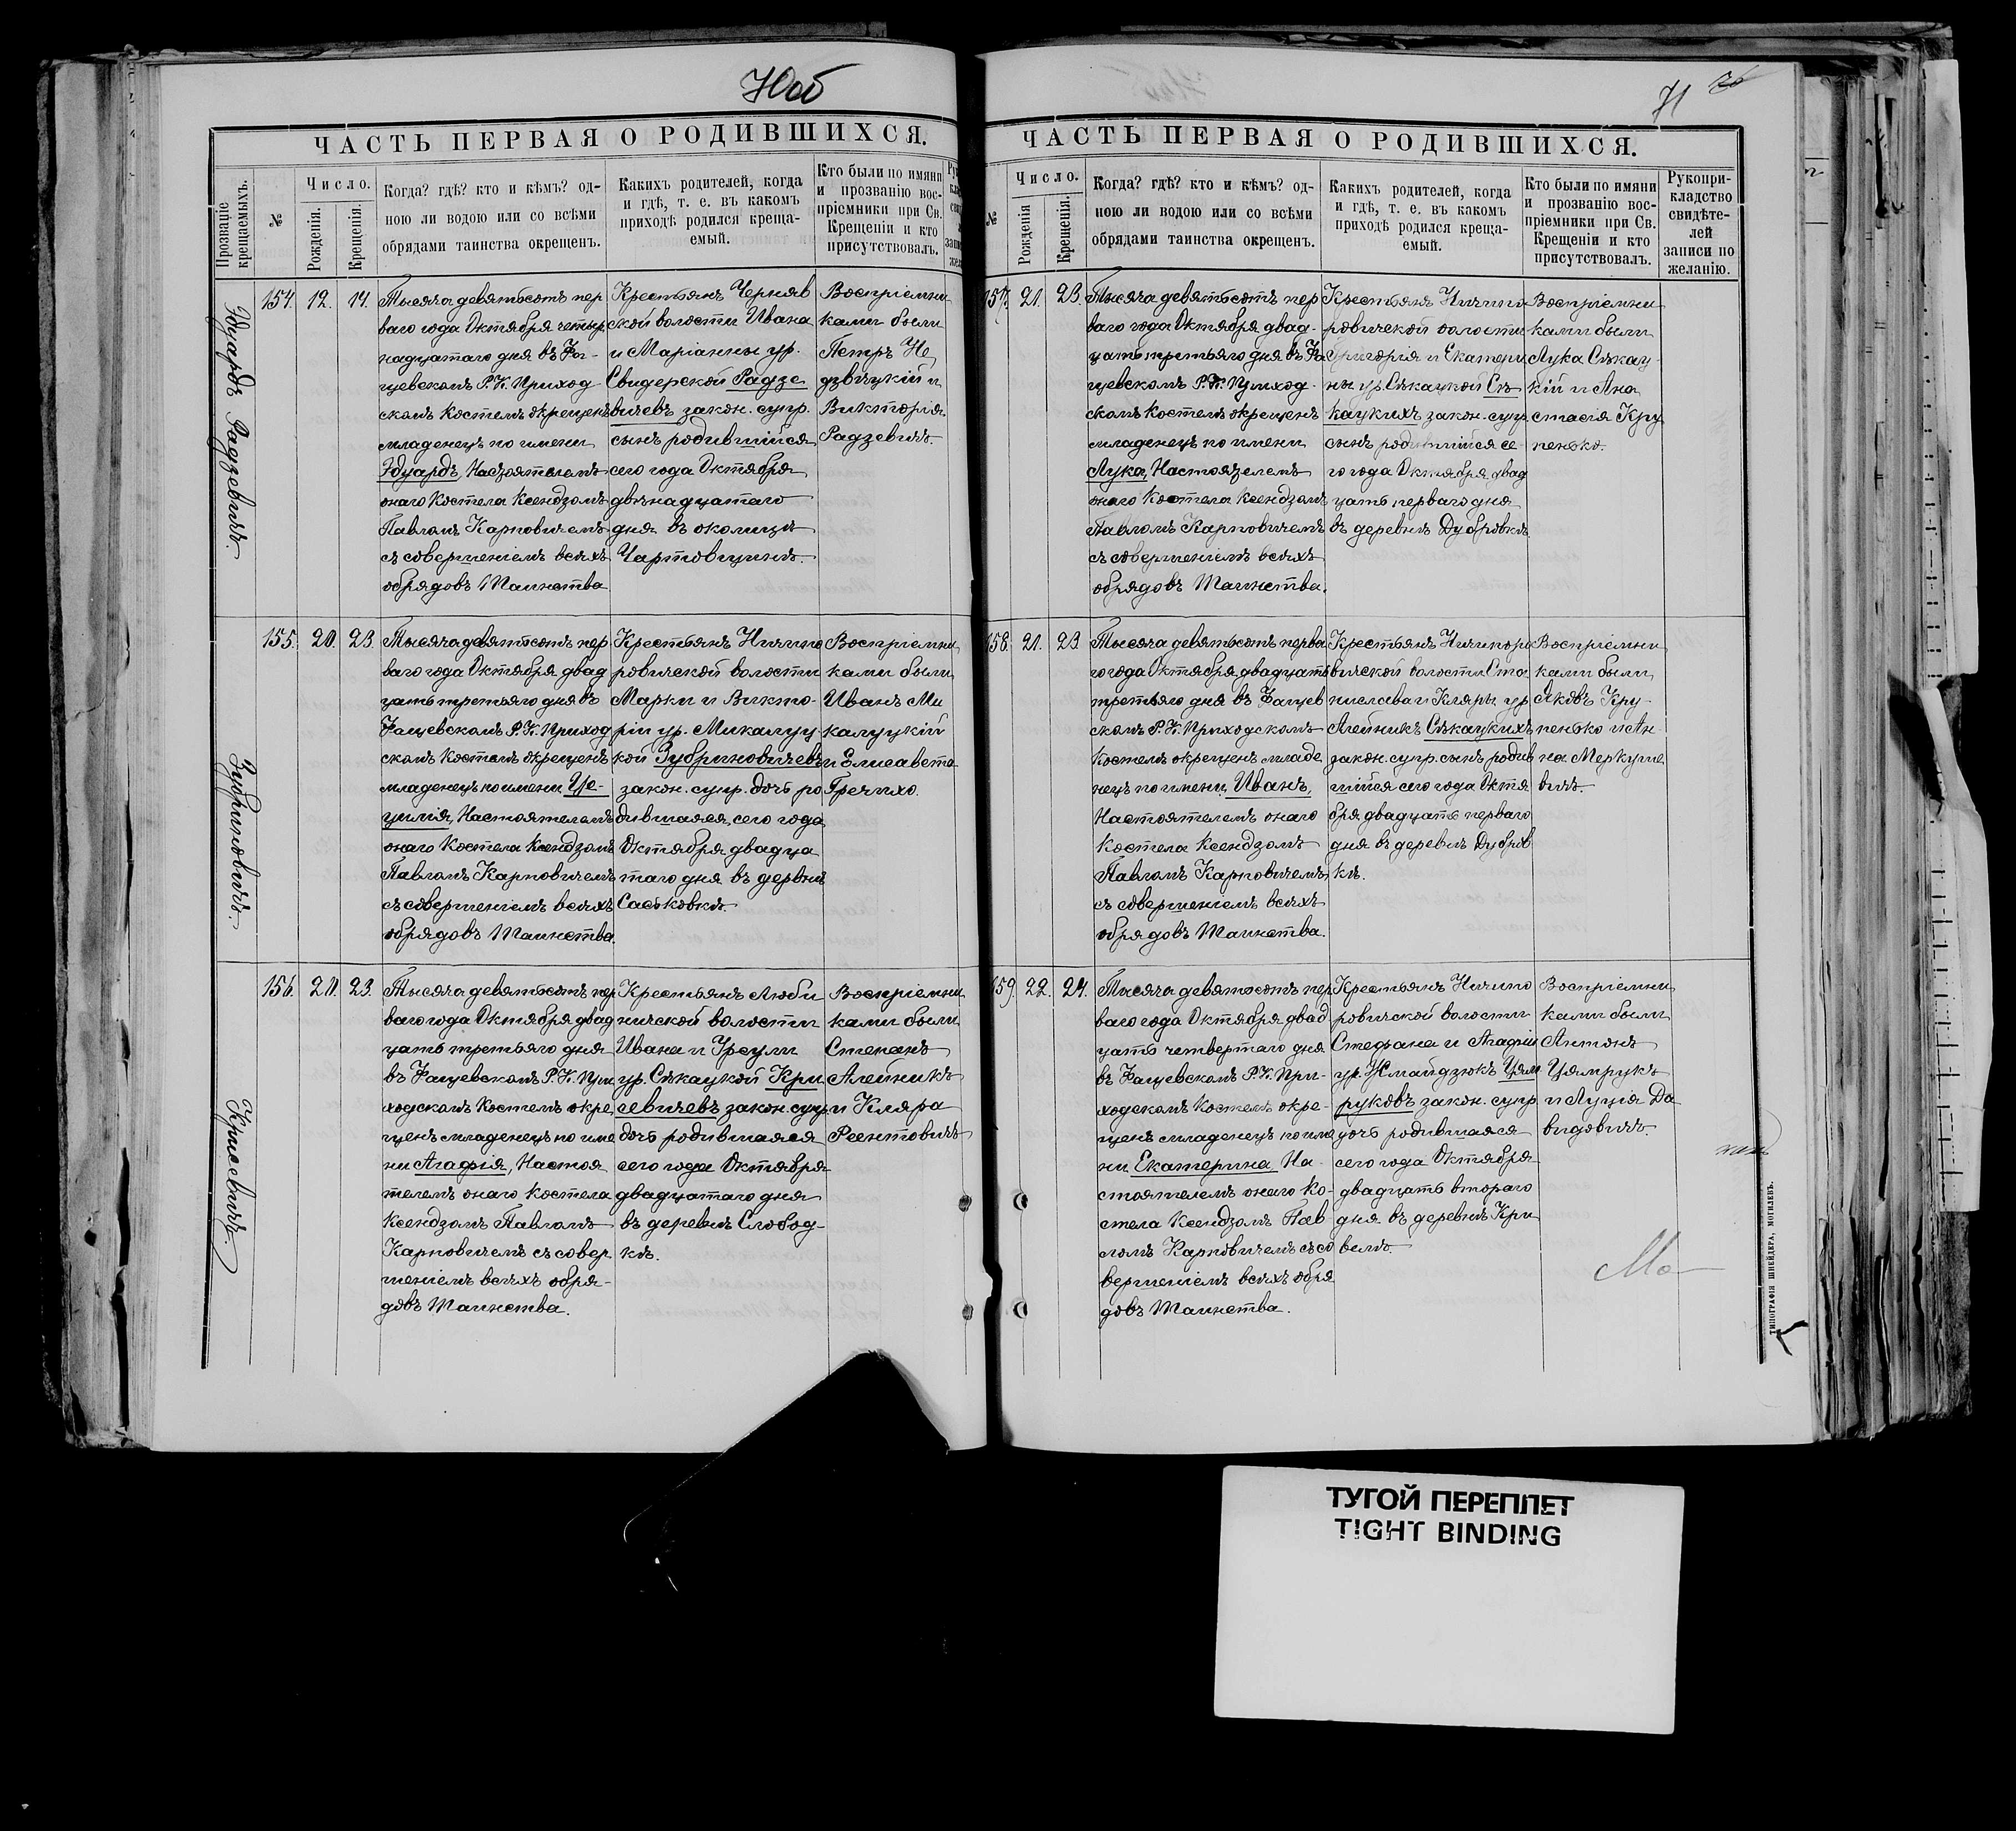 70об
ЧАСТЬ ПЕРВАЯ О РОДИВШИХСЯ.
Прозваніе крещаемыхъ.
№
Число.
Рожденія.
Крещенія.
Когда? гдѣ? кто и кѣмъ? од-
ною ли водою или со всѣми
обрядами таинства окрещенъ.
Какихъ родителей, когда
и гдѣ, т. е. въ какомъ
приходѣ родился креща-
емый.
Кто были по имяни
и прозванію вос-
пріемники при Св.
Крещеніи и кто
присутствовалъ.
Эдуардъ Радзевичъ.
154. 12. 14.
Тысяча девятьсотъ пер
ваго года Октября четыр
надцатаго дня въ Фа-
щевскомъ Р. К. Приход
скомъ Костелѣ окрещенъ
младенецъ по имени
Эдуардъ, Настоятелемъ
онаго Костела Ксендзомъ
Павломъ Карповичемъ
съ совершеніемъ всѣхъ
обрядовъ Таинства
Крестьянъ Черняв
ской волости Ивана
и Маріанны ур.
Свидерской Радзе
вичевъ закон. супр.
сынъ родившійся
сего года Октября
двѣнадцатаго
дня въ околицѣ
Чартовщинѣ.
Воспріемни
ками были
Петръ Не
дзвѣцкій и
Викторія
Радзевичъ.
Зубриновичъ.
155. 20. 23.
Тысяча девятьсотъ пер
ваго года Октября двад
цать третьяго дня въ
Фащевскомъ Р. К. Приход
скомъ Костелѣ окрещенъ
младенецъ по имени Це-
цилія, Настоятелемъ
онаго Костела Ксендзомъ
Павломъ Карповичемъ
съ совершеніемъ всѣхъ
обрядовъ Таинства.
Крестьянъ Ничипо
ровичской волости
Марки и Викто-
ріи ур. Микалуц
кой Зубриновичевъ
закон. супр. дочь ро
дившаяся сего года
Октября двадца
таго дня въ деревнѣ
Саськовкѣ.
Воспріемни
ками были
Иванъ Ми
калуцкій
и Елисавета
Гречихо.
Крисевичъ.
156. 20. 23.
Тысяча девятьсотъ пер
ваго года Октября двад
цать третьяго дня
въ Фащевскомъ Р. К. При
ходскомъ Костелѣ окре
щенъ младенецъ по име
ни Агафія, Настоя
телемъ онаго Костела
Ксендзомъ Павломъ
Карповичемъ съ совер
шеніемъ всѣхъ обря-
довъ Таинства.
Крестьянъ Люби
ничской волости
Ивана и Урсули
ур. Сѣкацкой Кри
севичевъ закон. супр
дочь родившаяся
сего года Октября
двадцатаго дня
въ деревнѣ Слобод-
кѣ.
Воспріемни
ками были
Степанъ
Алейникъ
и Кляра
Реентовичъ
71
ЧАСТЬ ПЕРВАЯ О РОДИВШИХСЯ.
№
Число.
Рожденія
Крещенія.
Когда? гдѣ? кто и кѣмъ? од-
ною ли водою или со всѣми
обрядами таинства окрещенъ.
Какихъ родителей, когда
и гдѣ, т. е. въ какомъ
приходѣ родился креща-
емый.
Кто были по имяни
и прозванію вос-
пріемники при Св.
Крещеніи и кто
присутствовалъ.
Рукопри-
кладство
свидѣте-
лей
записи по
желанію.
157. 21. 23.
Тысяча девятьсотъ пер
ваго года Октября двад-
цать третьяго дня въ Фа
щевскомъ Р. К. Приход-
скомъ Костелѣ окрещенъ
младенецъ по имени
Лука, Настоятелемъ
онаго Костела Ксендзомъ
Павломъ Карповичемъ
съ совершеніемъ всѣхъ
обрядовъ Таинства.
Крестьянъ Ничипо
ровичской волости
Григорія и Екатери
ны ур. Сѣкацкой Сѣ
кацкихъ закон. супр.
сынъ родившійся се-
го года Октября двад
цать перваго дня
въ деревнѣ Дубровкѣ
Воспріемни
ками были
Лука Сѣкац-
кій и Ана
стасія Кру
пенько.
158. 21. 23
Тысяча девятьсотъ перва
го года Октября двадцать
третьяго дня въ Фащев
скомъ Р. К. Приходскомъ
Костелѣ окрещенъ младе
нецъ по имени Иванъ,
Настоятелемъ онаго
Костела Ксендзомъ
Павломъ Карповичемъ
съ совершеніемъ всѣхъ
обрядовъ Таинства.
Крестьянъ Ничипоро
вичской волости Ста
нислава и Кляры ур
Алейникъ Сѣкацкихъ
закон. супр. сынъ родив
шійся сего года Октя
бря двадцать перваго
дня въ деревнѣ Дубров
кѣ.
Воспріемни
ками были
Яковъ Кру-
пенько и Ан
на Меркуше
вичъ.
159. 22. 24.
Тысяча девятьсотъ пер
ваго года Октября двад
цать четвертаго дня
въ Фащевскомъ Р. К. При-
ходскомъ Костелѣ окре-
щенъ младенецъ по име
ни Екатерина На-
стоятелемъ онаго Ко-
стела Ксендзомъ Пав
ломъ Карповичемъ съ со
вершеніемъ всѣхъ обря
довъ Таинства.
Крестьянъ Ничипо
ровичской волости
Стефана и Агафіи
ур. Жмайдзюкъ Цям
руковъ закон. супр
дочь родившаяся
сего года Октября
двадцать второго
дня въ деревнѣ Кри
велѣ.
Воспріемни
ками были
Антонъ
Цямрукъ
и Луція Да
видовичъ.
ТИПОГРАФІЯ ШНЕЙДЕРА, МОГИЛЕВЪ.
ТУГОЙ ПЕРЕПЛЕТ
TIGHT BINDING